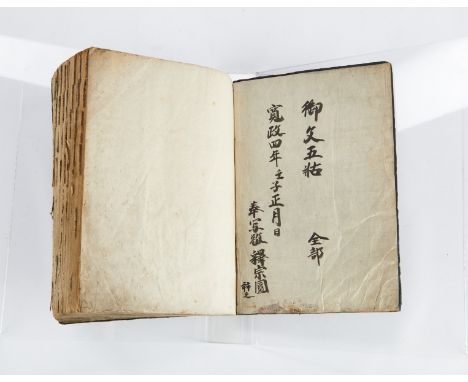 御文五帖 全部
寛政四年壬子正月日
奉写主 釋宗圓